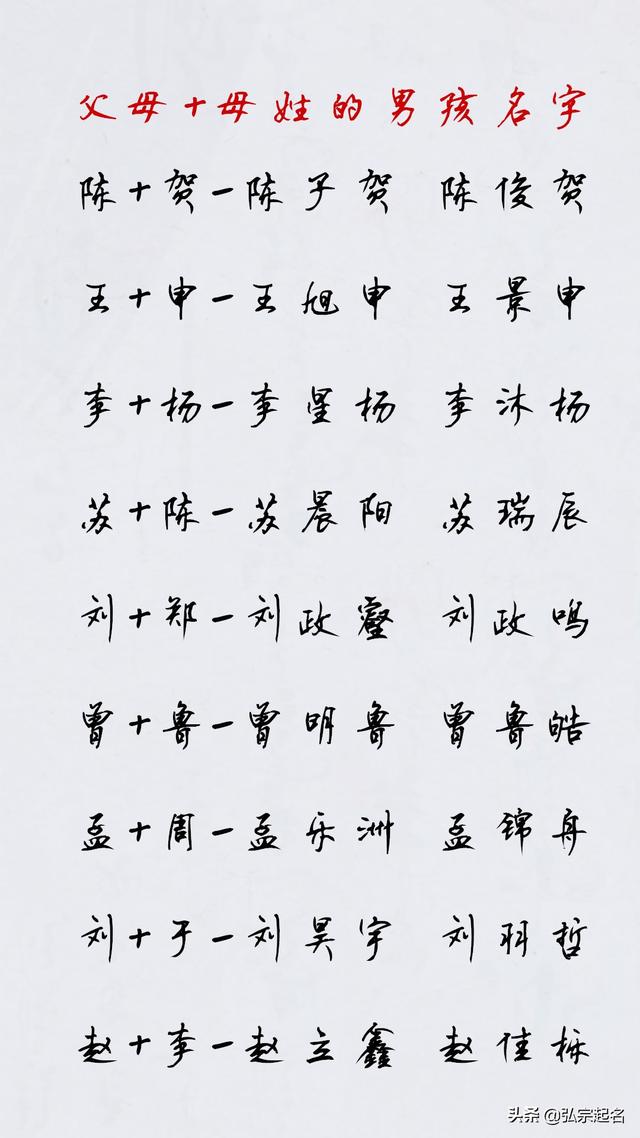 父母十母姓的男孩名字
陈十贺一陈子贺 陈俊贺
王十申一王旭申 王景申
李十杨一李星杨 李沐杨
苏十陈一苏晨阳 苏瑞辰
刘十郑一刘政壑 刘政鸣
曾十鲁一曾明鲁 曾鲁皓
孟十周一孟乐洲 孟锦舟
刘十于一刘昊宇 刘羽哲
赵十李一赵立鑫 赵佳栎
头条 @弘宗起名